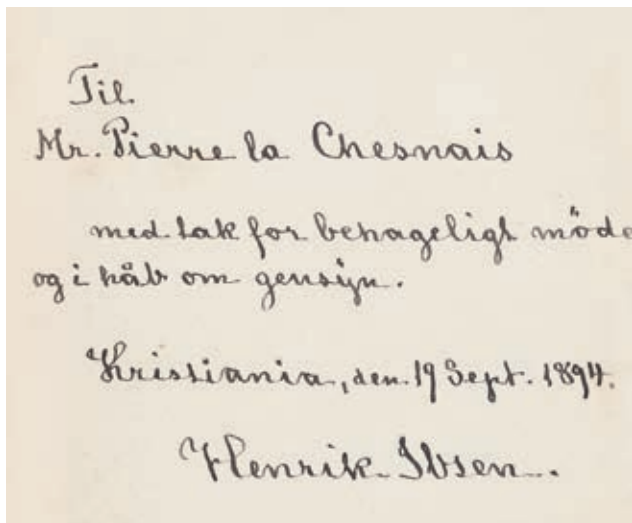 Til
Mr. Pierre la Chesnais
med tak for behageligt möde
og i håb om gensyn.
Kristiania, den 19 Sept. 1894.
Henrik Ibsen.